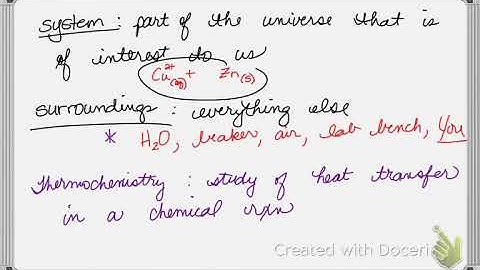 system : part of the universe that is
of interest to us
Cu²⁺(aq) + Zn(s)
surroundings : everything else
* H₂O, beaker, air, lab bench, You
Thermochemistry : study of heat transfer
in a chemical rxn
Created with Doceri